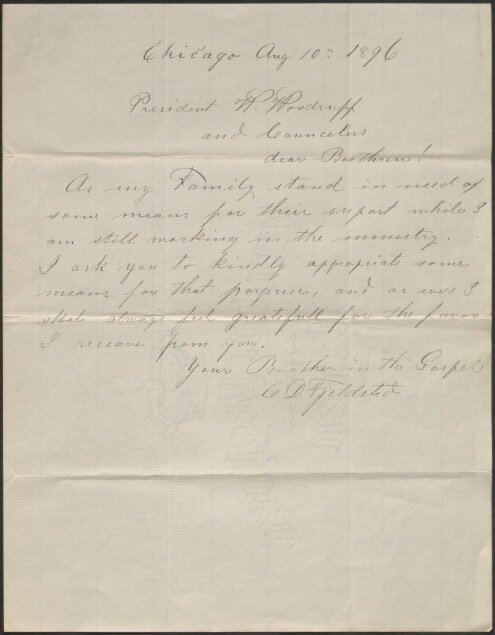 Chicago Aug 10th 1896
President W. Woodruff
and Councelers
dear Brothren!
As my Family stand in need of
some means for their suport while I
am still working in the ministry.
I ask you to kindly appropriate some
means for that porpuse, and as ever I
skal always feel greatfull for the favor
I receave from you.
Your Broother in the Gospel
C. D. Fjeldsted